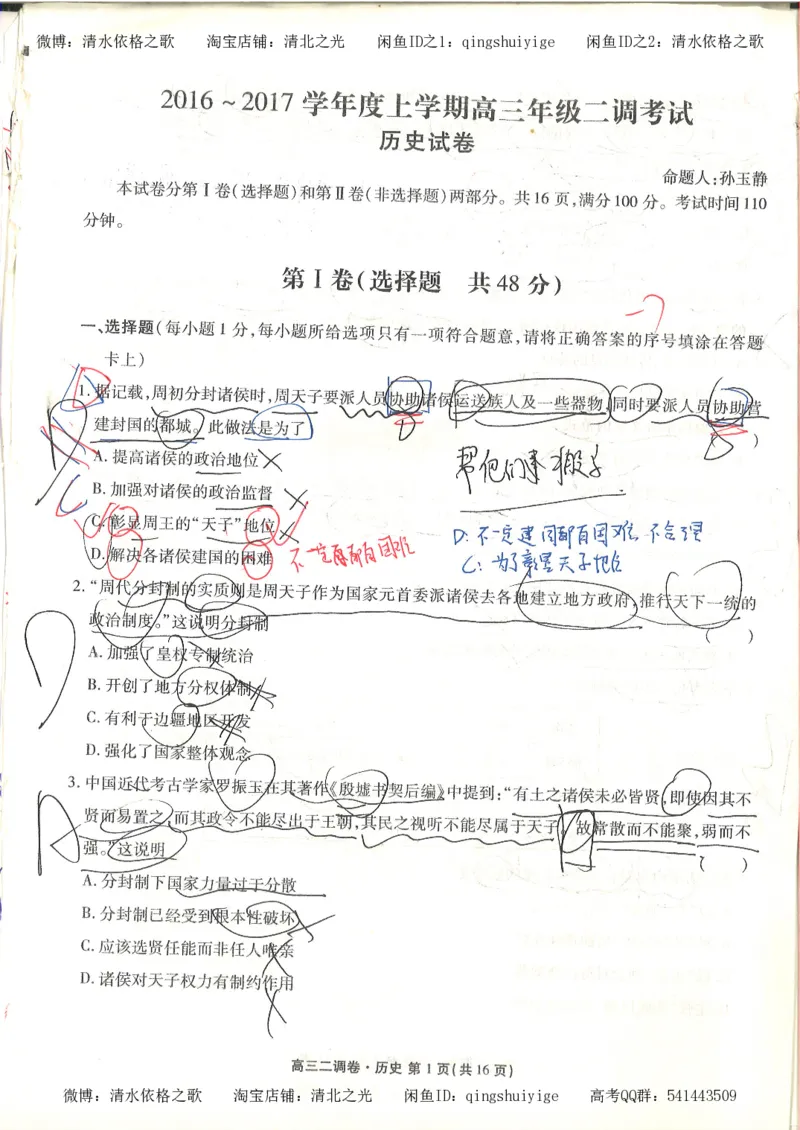 微博：清水依格之歌 淘宝店铺：清北之光 闲鱼ID之1：qingshuiyige 闲鱼ID之2：清水依格之歌
2016～2017学年度上学期高三年级二调考试
历史试卷
命题人:孙玉静
本试卷分第Ⅰ卷(选择题)和第Ⅱ卷(非选择题)两部分。共16页,满分100分。考试时间110
分钟。
第Ⅰ卷(选择题 共48分)
-7
一、选择题(每小题1分,每小题所给选项只有一项符合题意,请将正确答案的序号填涂在答题
卡上)
1. 据记载,周初分封诸侯时,周天子要派人员协助诸侯运送族人及一些器物,同时要派人员协助营
建封国的都城。此做法是为了 ( )
A. 提高诸侯的政治地位
B. 加强对诸侯的政治监督
C. 彰显周王的“天子”地位
D. 解决各诸侯建国的困难
D: 不一定建国都有困难 不合理
C: 为了彰显天子地位
2. “周代分封制的实质则是周天子作为国家元首委派诸侯去各地建立地方政府,推行天下一统的
政治制度。”这说明分封制 ( )
A. 加强了皇权专制统治
B. 开创了地方分权体制
C. 有利于边疆地区开发
D. 强化了国家整体观念
3. 中国近代考古学家罗振玉在其著作《殷墟书契后编》中提到:“有土之诸侯未必皆贤,即使因其不
贤而易置之,而其政令不能尽出于王朝,其民之视听不能尽属于天子。故常散而不能聚,弱而不
强。”这说明 ( )
A. 分封制下国家力量过于分散
B. 分封制已经受到根本性破坏
C. 应该选贤任能而非任人唯亲
D. 诸侯对天子权力有制约作用
高三二调卷·历史 第1页(共16页)
微博：清水依格之歌 淘宝店铺：清北之光 闲鱼ID：qingshuiyige 高考QQ群：541443509